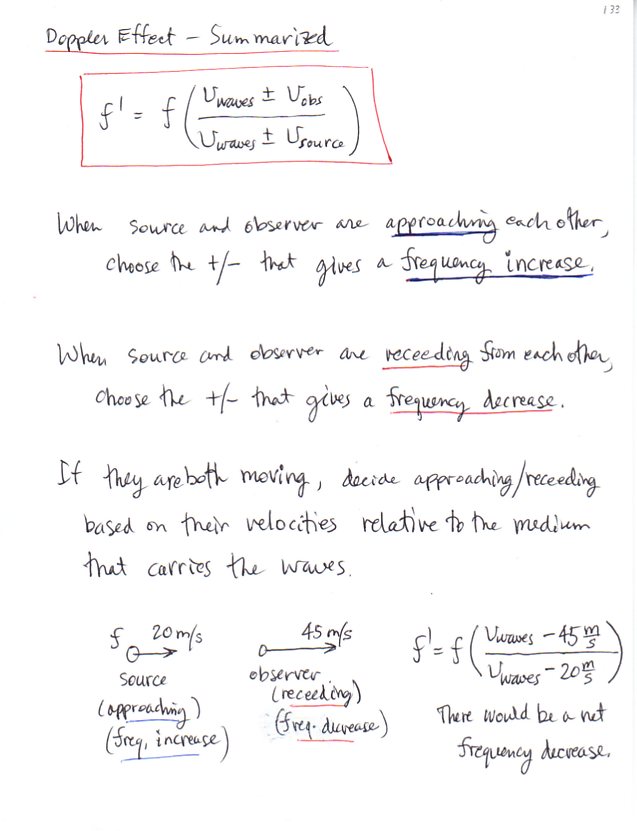 133
Doppler Effect – Summarized
f' = f ( (Vwaves ± Vobs) / (Vwaves ± Vsource) )
When source and observer are approaching each other,
choose the +/- that gives a frequency increase.
When source and observer are receeding from each other,
choose the +/- that gives a frequency decrease.
If they are both moving, decide approaching/receeding
based on their velocities relative to the medium
that carries the waves.
f 20 m/s
source
(approaching)
(freq. increase)
45 m/s
observer
(receeding)
(freq. decrease)
f' = f ( (Vwaves – 45 m/s) / (Vwaves – 20 m/s) )
There would be a net
frequency decrease.